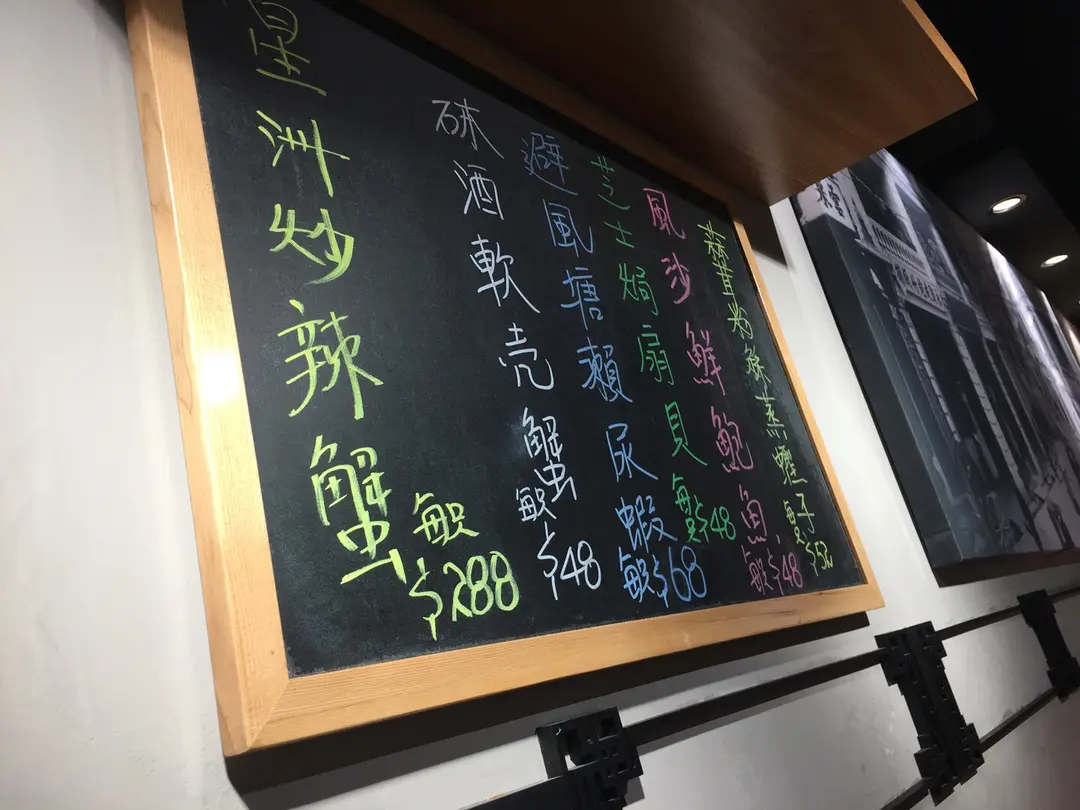 蒜茸粉絲蒸蟶子 每只$52
風沙鮮鮑魚 每只$48
芝士焗扇貝 每只$48
避風塘瀨尿蝦 每只$68
砵酒軟壳蟹 每只$48
星洲炒辣蟹 每只$288